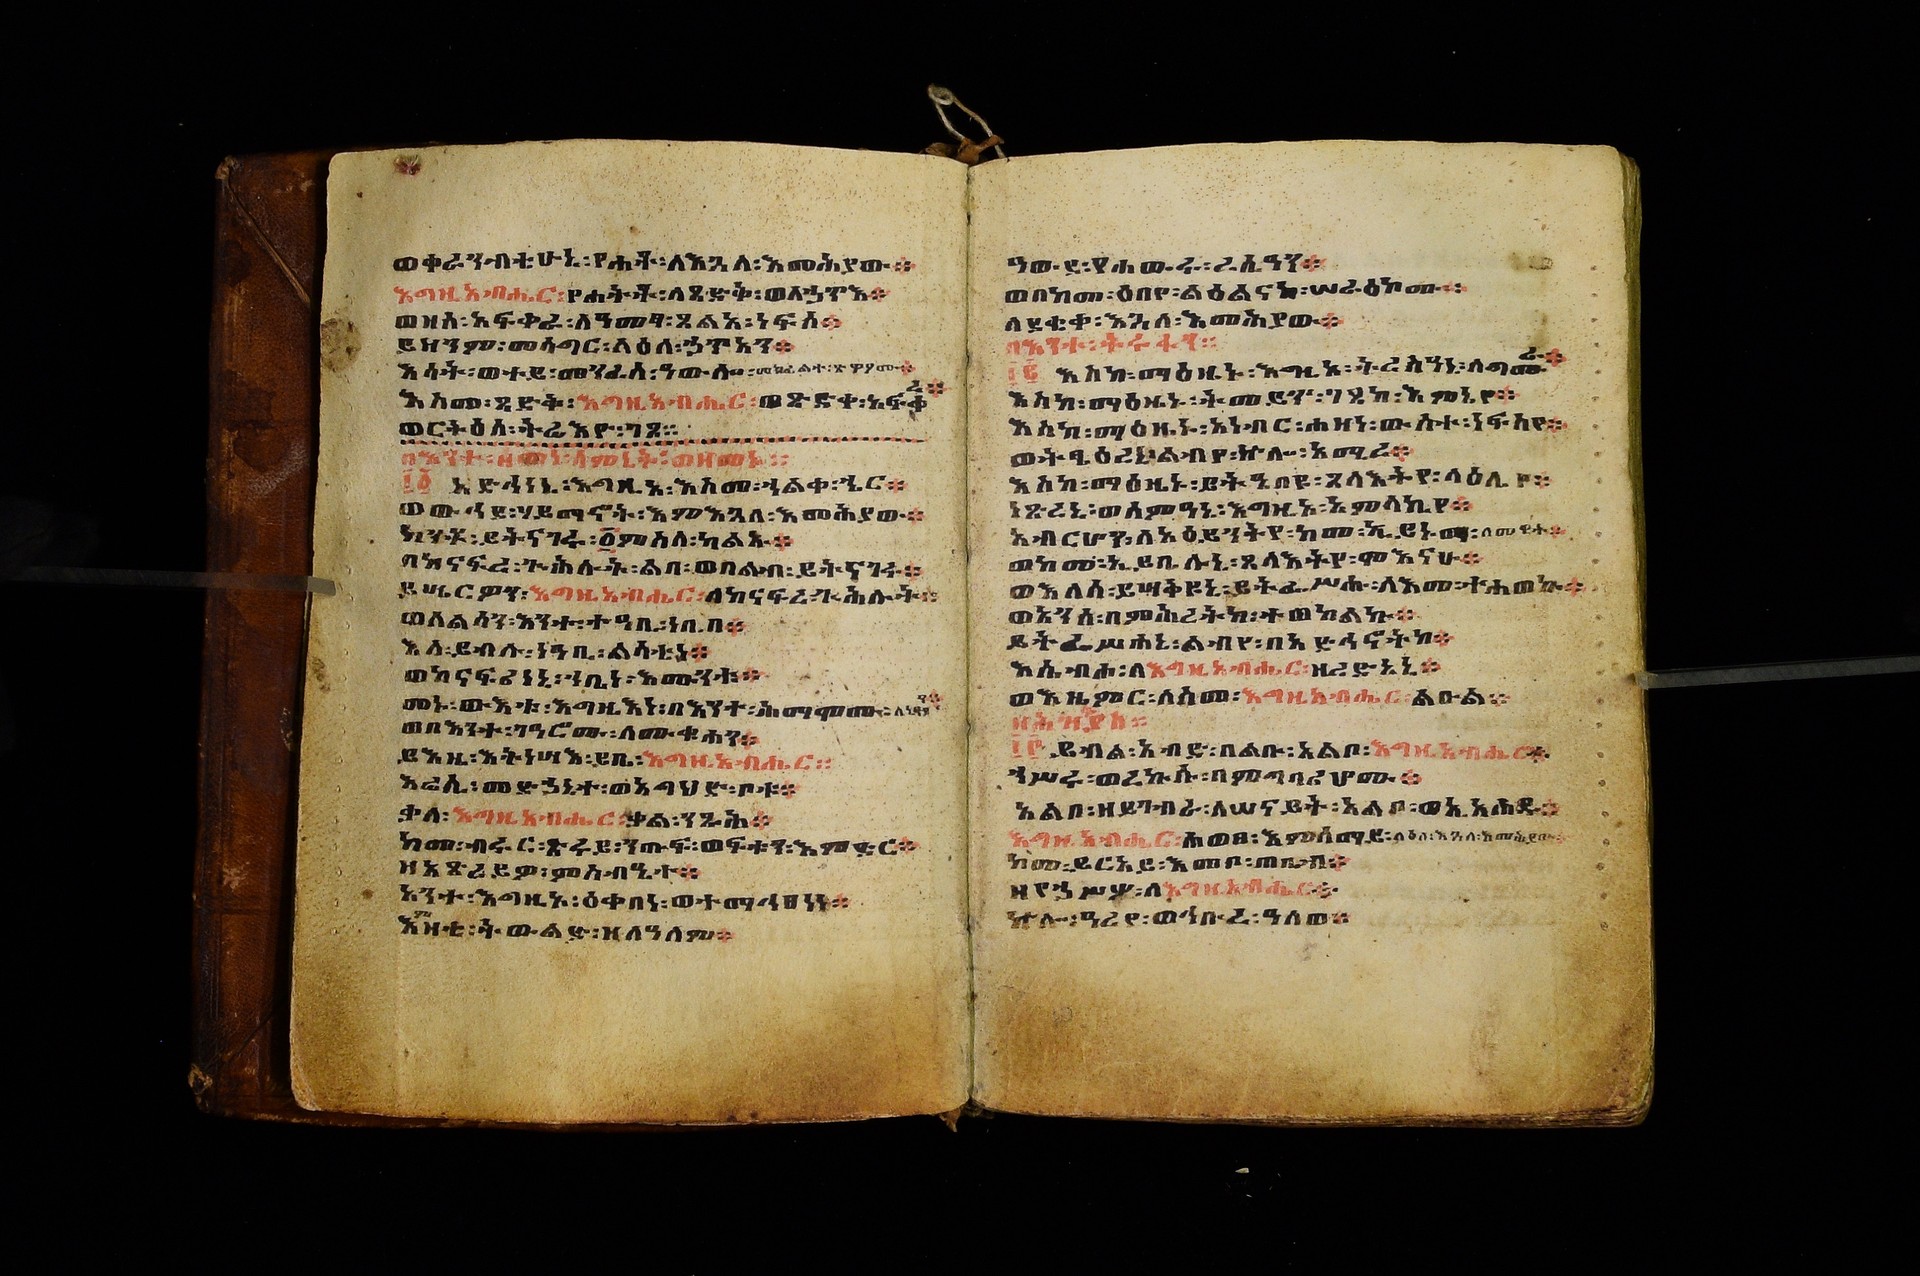 ወቀራንብቲሁኒ፡የሐትት፡ለእጓለ፡እመሕያው።
እግዚአብሔር፡የሐትት፡ለጻድቅ፡ወለኃጥእ።
ወዘሰ፡አፍቀራ፡ለዓመፃ፡ጸልአ፡ነፍሶ።
ይዘንም፡መሳግር፡ላዕለ፡ኃጥአን።
እሳት፡ወተይ፡መንፈሰ፡ዓውሎ፡መክፈልተ፡ጽዋዖሙ።
እስመ፡ጻድቅ፡እግዚአብሔር፡ወጽድቀ፡አፍቀረ።
ወርትዕሰ፡ትሬእዮ፡ገጹ።
በእንተ፡ዘመነ፡ሰምኒት፡ወዘመኑ።
፲፩ አድኅነኒ፡እግዚኦ፡እስመ፡ኃልቀ፡ኄር።
ወውኅደ፡ሃይማኖት፡እምእጓለ፡እመሕያው።
ከንቶ፡ይትናገሩ፡፩ምስለ፡ካልኡ።
በከናፍረ፡ጉሕሉት፡ልብ፡ወበልብ፡ይትናገሩ።
ይሤርዎን፡እግዚአብሔር፡ለከናፍረ፡ጉሕሉት።
ወለልሳን፡እንተ፡ተዓቢ፡ነቢበ።
እለ፡ይብሉ፡ነዓቢ፡ልሳቲነ።
ወከናፍሪነኒ፡ኀቤነ፡እሙንቱ።
መኑ፡ውእቱ፡እግዚእነ፡በእንተ፡ሕማሞሙ፡ለነዳያን።
ወበእንተ፡ገዓሮሙ፡ለሙቁሐን።
ይእዜ፡እትነሣእ፡ይቤ፡እግዚአብሔር።
እሬሲ፡መድኃኒተ፡ወእግህድ፡ቦቱ።
ቃለ፡እግዚአብሔር፡ቃል፡ንጹሕ።
ከመ፡ብሩር፡ጽሩይ፡ንጡፍ፡ወፍቱን፡እምድር።
ዘአጽረይዎ፡ምስብዒተ።
አንተ፡እግዚኦ፡ዕቀበነ፡ወተማኅፀነነ።
እምዛቲ፡ትውልድ፡ዘለዓለም።
ዓውደ፡የሐውሩ፡ረሲዓን።
ወበከመ፡ዕበየ፡ልዕልናከ፡ሠራዕኮሙ።
ለደቂቀ፡እጓለ፡እመሕያው።
በእንተ፡ትሩፋን።
፲፪ እስከ፡ማዕዜኑ፡እግዚኦ፡ትረስዓኒ፡ለግሙራ።
እስከ፡ማዕዜኑ፡ትመይጥ፡ገጸከ፡እምኔየ።
እስከ፡ማዕዜኑ፡አነብር፡ሐዘነ፡ውስተ፡ነፍስየ።
ወትጼዕረኒ፡ልብየ፡ኵሎ፡አሚረ።
እስከ፡ማዕዜኑ፡ይትዔበዩ፡ጸላእትየ፡ላዕሌየ።
ነጽረኒ፡ወስምዓኒ፡እግዚኦ፡አምላኪየ።
አብርሆን፡ለአዕይንትየ፡ከመ፡ኢይኑማ፡ለመዊት።
ወከመ፡ኢይበሉኒ፡ጸላእትየ፡ሞእናሁ።
ወእለሰ፡ይሣቅዩኒ፡ይትፌሥሑ፡ለእመ፡ተሐወኩ።
ወአንሰ፡በምሕረትከ፡ተወከልኩ።
ይትፌሥሐኒ፡ልብየ፡በአድኅኖትከ።
እሴብሖ፡ለእግዚአብሔር፡ዘረድአኒ።
ወእዜምር፡ለስመ፡እግዚአብሔር፡ልዑል።
ዘሕዝቅያስ።
፲፫ ይብል፡አብድ፡በልቡ፡አልቦ፡እግዚአብሔር።
ኀሥሩ፡ወረኵሱ፡በምግባሪሆሙ።
አልቦ፡ዘይገብራ፡ለሠናይት፡አልቦ፡ወኢአሐዱ።
እግዚአብሔር፡ሐወጸ፡እምሰማይ፡ላዕለ፡እጓለ፡እመሕያው።
ከመ፡ይርአይ፡እመቦ፡ጠቢብ።
ዘየኃሥሦ፡ለእግዚአብሔር።
ኵሉ፡ዓረየ፡ወኅቡረ፡ዓለወ።